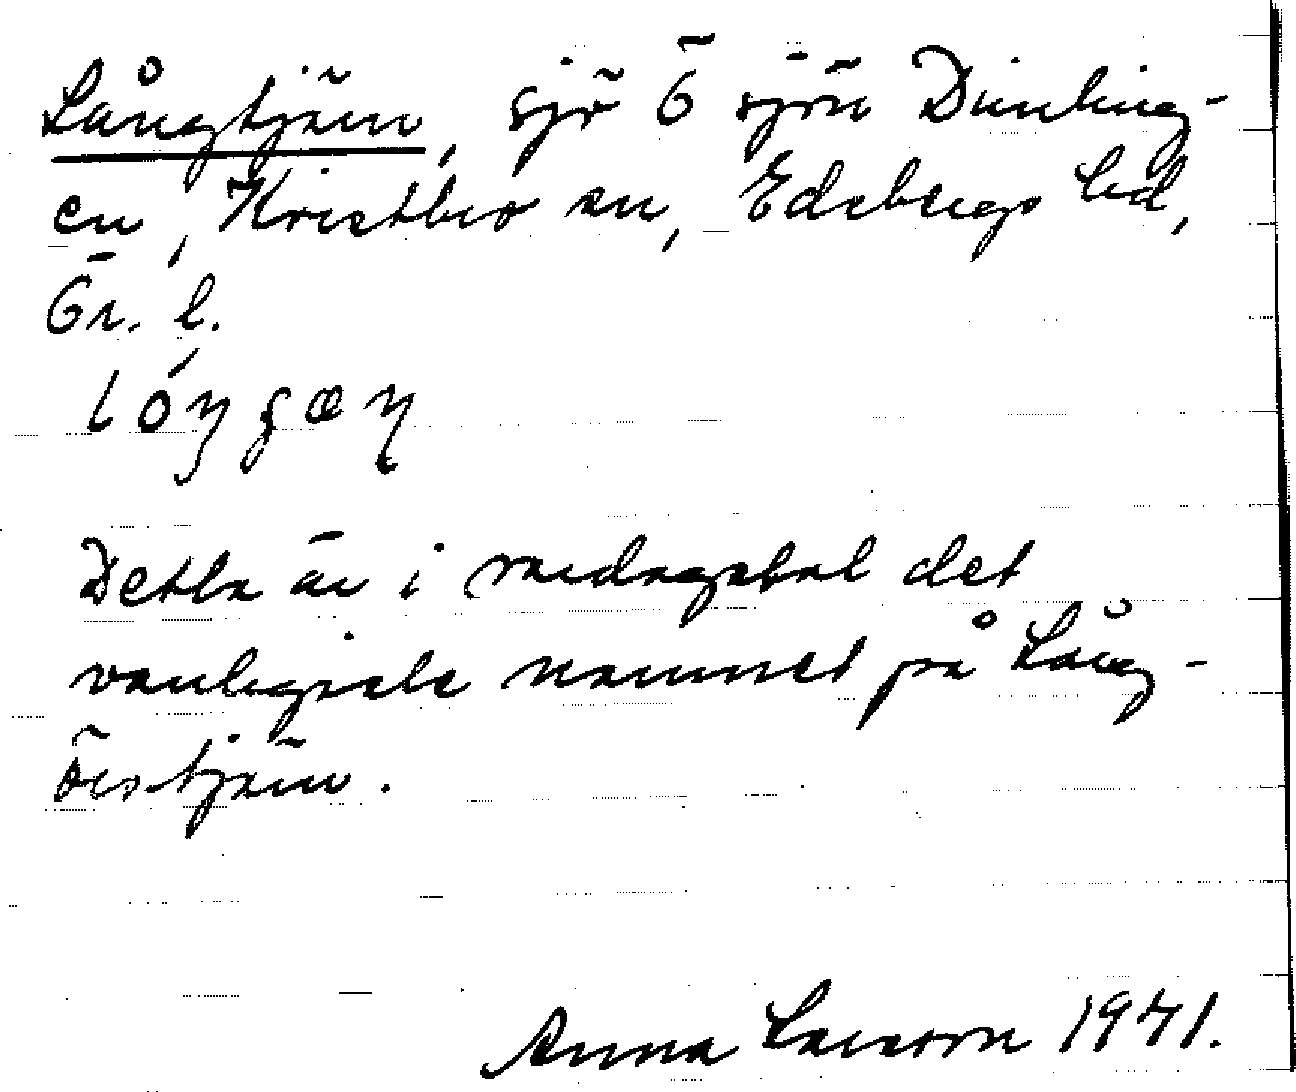 Långtjärn, sjö Ö sjön Dunling-
en, Kristbro sn, Edsbergs hd,
Ör. l.
lóŋçæŋ
Detta är i vardagstal det
vanligaste namnet på Lång-
östjärn.
Anna Larsson 1941.